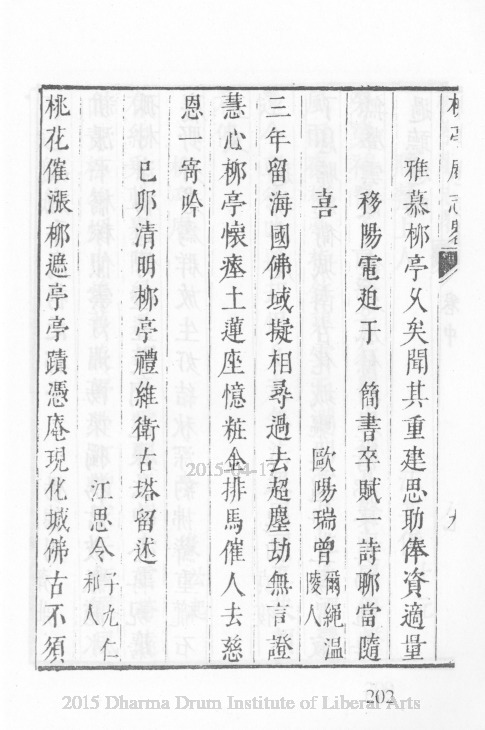 雅慕柳亭久矣聞其重建思助俸資適量
移陽電廹于　簡書卒賦一詩聊當隨
喜　歐陽瑞曾爾繩温陵人
三年留海國佛域擬相尋過去超塵劫無言證
慧心柳亭懷瘞土蓮座憶粧金排馬催人去慈
恩一寄吟
己夘清明柳亭禮維衛古塔留述
江思令子九仁和人
桃花催漲柳遮亭亭蹟憑庵現化城佛古不須
202
2015-04-17
2015 Dharma Drum Institute of Liberal Arts